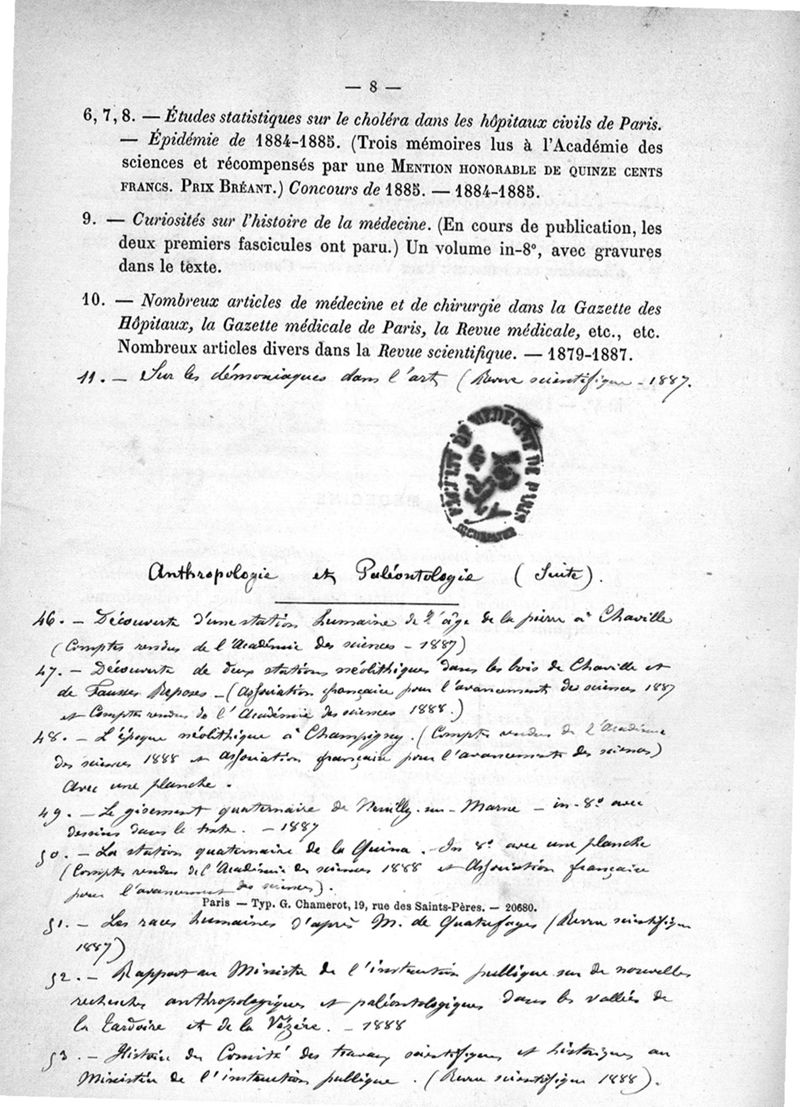 — 8 —
6, 7, 8. — Études statistiques sur le choléra dans les hôpitaux civils de Paris.
— Épidémie de 1884-1885. (Trois mémoires lus à l'Académie des
sciences et récompensés par une MENTION HONORABLE DE QUINZE CENTS
FRANCS. PRIX BRÉANT.) Concours de 1885. — 1884-1885.
9. — Curiosités sur l'histoire de la médecine. (En cours de publication, les
deux premiers fascicules ont paru.) Un volume in-8°, avec gravures
dans le texte.
10. — Nombreux articles de médecine et de chirurgie dans la Gazette des
Hôpitaux, la Gazette médicale de Paris, la Revue médicale, etc., etc.
Nombreux articles divers dans la Revue scientifique. — 1879-1887.
11. — Sur les démoniaques dans l'art (Revue scientifique — 1887.
FACULTÉ DE MÉDECINE DE PARIS
Anthropologie et Paléontologie (Suite).
46. — Découverte d'une station humaine de l'âge de la pierre à Chaville
(Comptes rendus de l'Académie des sciences — 1887)
47. — Découverte de deux stations néolithiques dans les bois de Chaville et
de Fausses Reposes — (Association française pour l'avancement des sciences 1887
et Comptes rendus de l'Académie des sciences 1888.)
48. — L'époque néolithique à Champigny. (Comptes rendus de l'Académie
des sciences 1888 et Association française pour l'avancement des sciences)
Avec une planche.
49. — Le gisement quaternaire de Neuilly-sur-Marne — in-8° avec
dessins dans le texte. — 1887
50. — La station quaternaire de la Quina. In 8° avec une planche
(Comptes rendus de l'Académie des sciences 1888 et Association française
pour l'avancement des sciences).
Paris — Typ. G. Chamerot, 19, rue des Saints-Pères. — 20680.
51. — Les races humaines d'après M. de Quatrefages (Revue scientifique
1887)
52. — Rapport au Ministre de l'instruction publique sur de nouvelles
recherches anthropologiques et paléontologiques dans les vallées de
la Tardoire et de la Vézère. — 1888
53. — Histoire du Comité des travaux scientifiques et historiques au
Ministère de l'instruction publique. (Revue scientifique 1888).